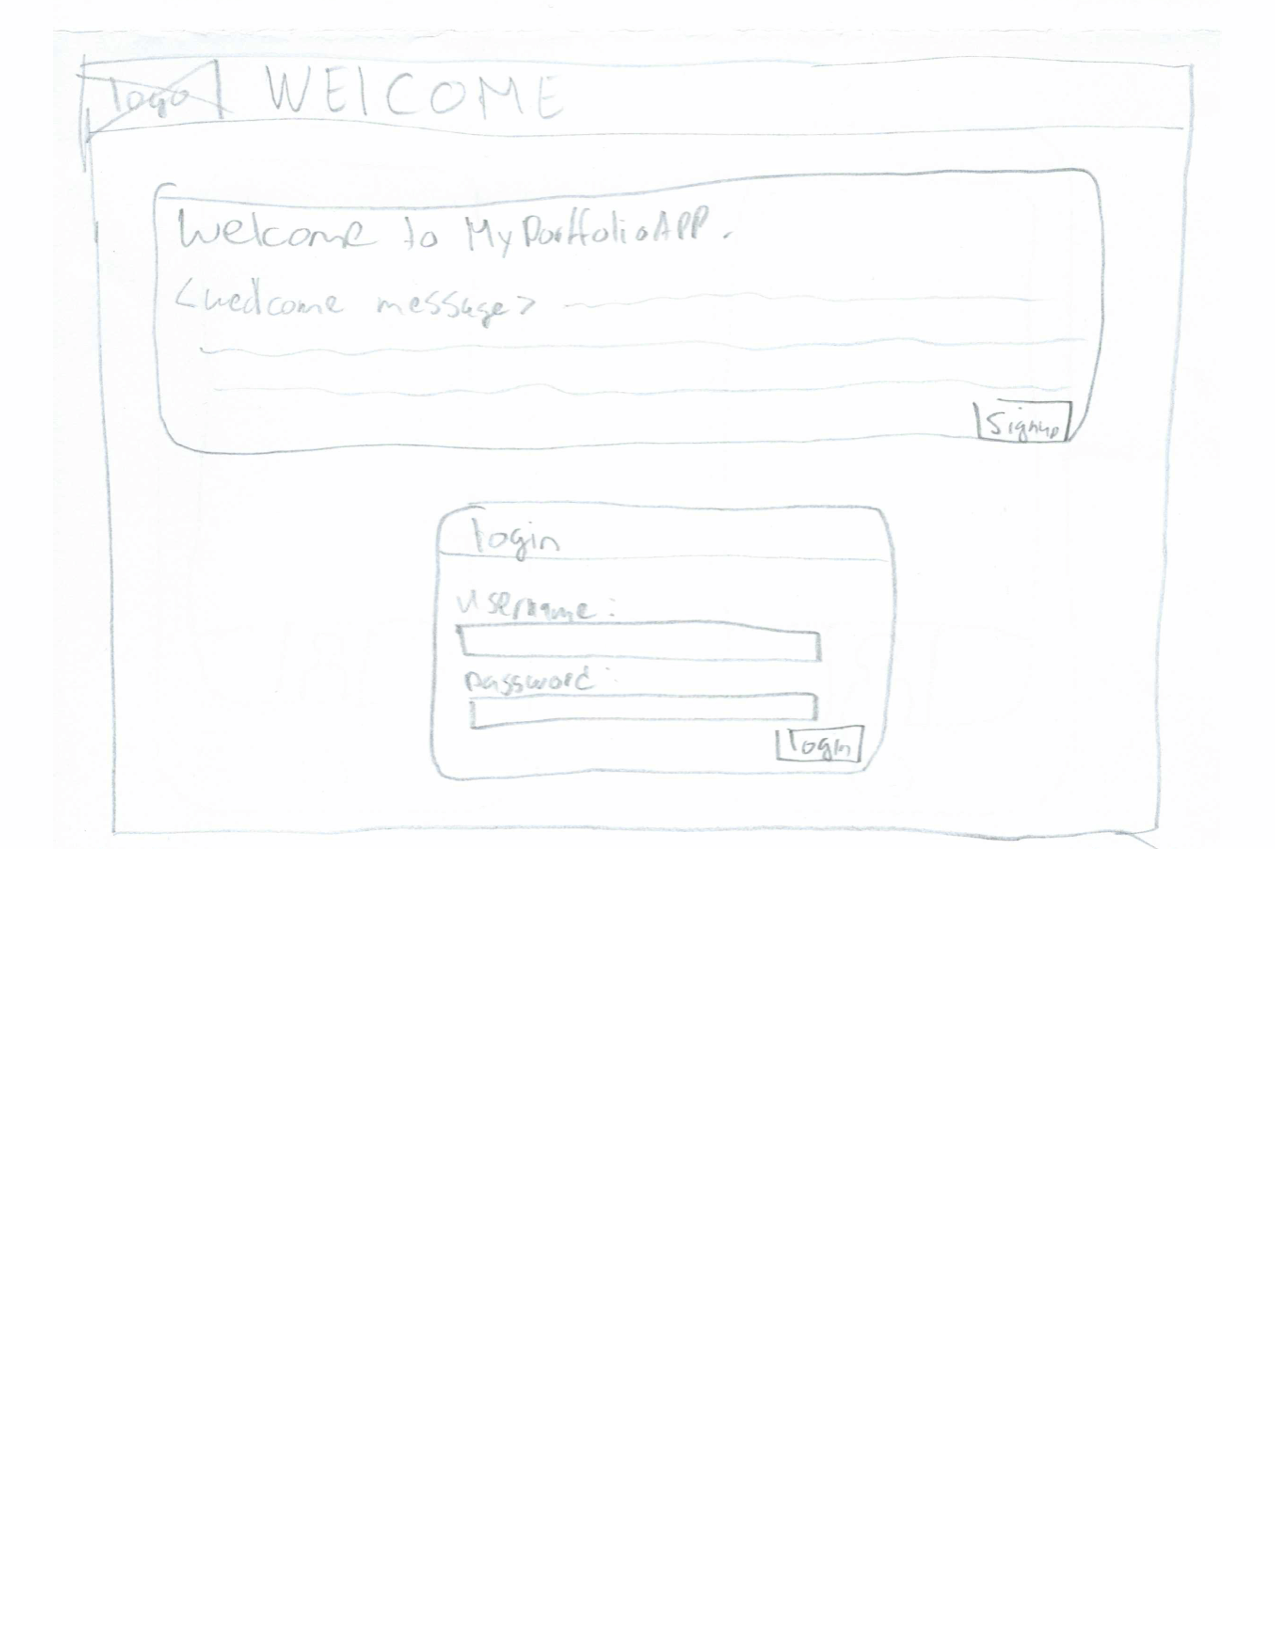 logo WELCOME
Welcome to MyPortfolioAPP.
<welcome message>
Signup
login
username:
password:
login